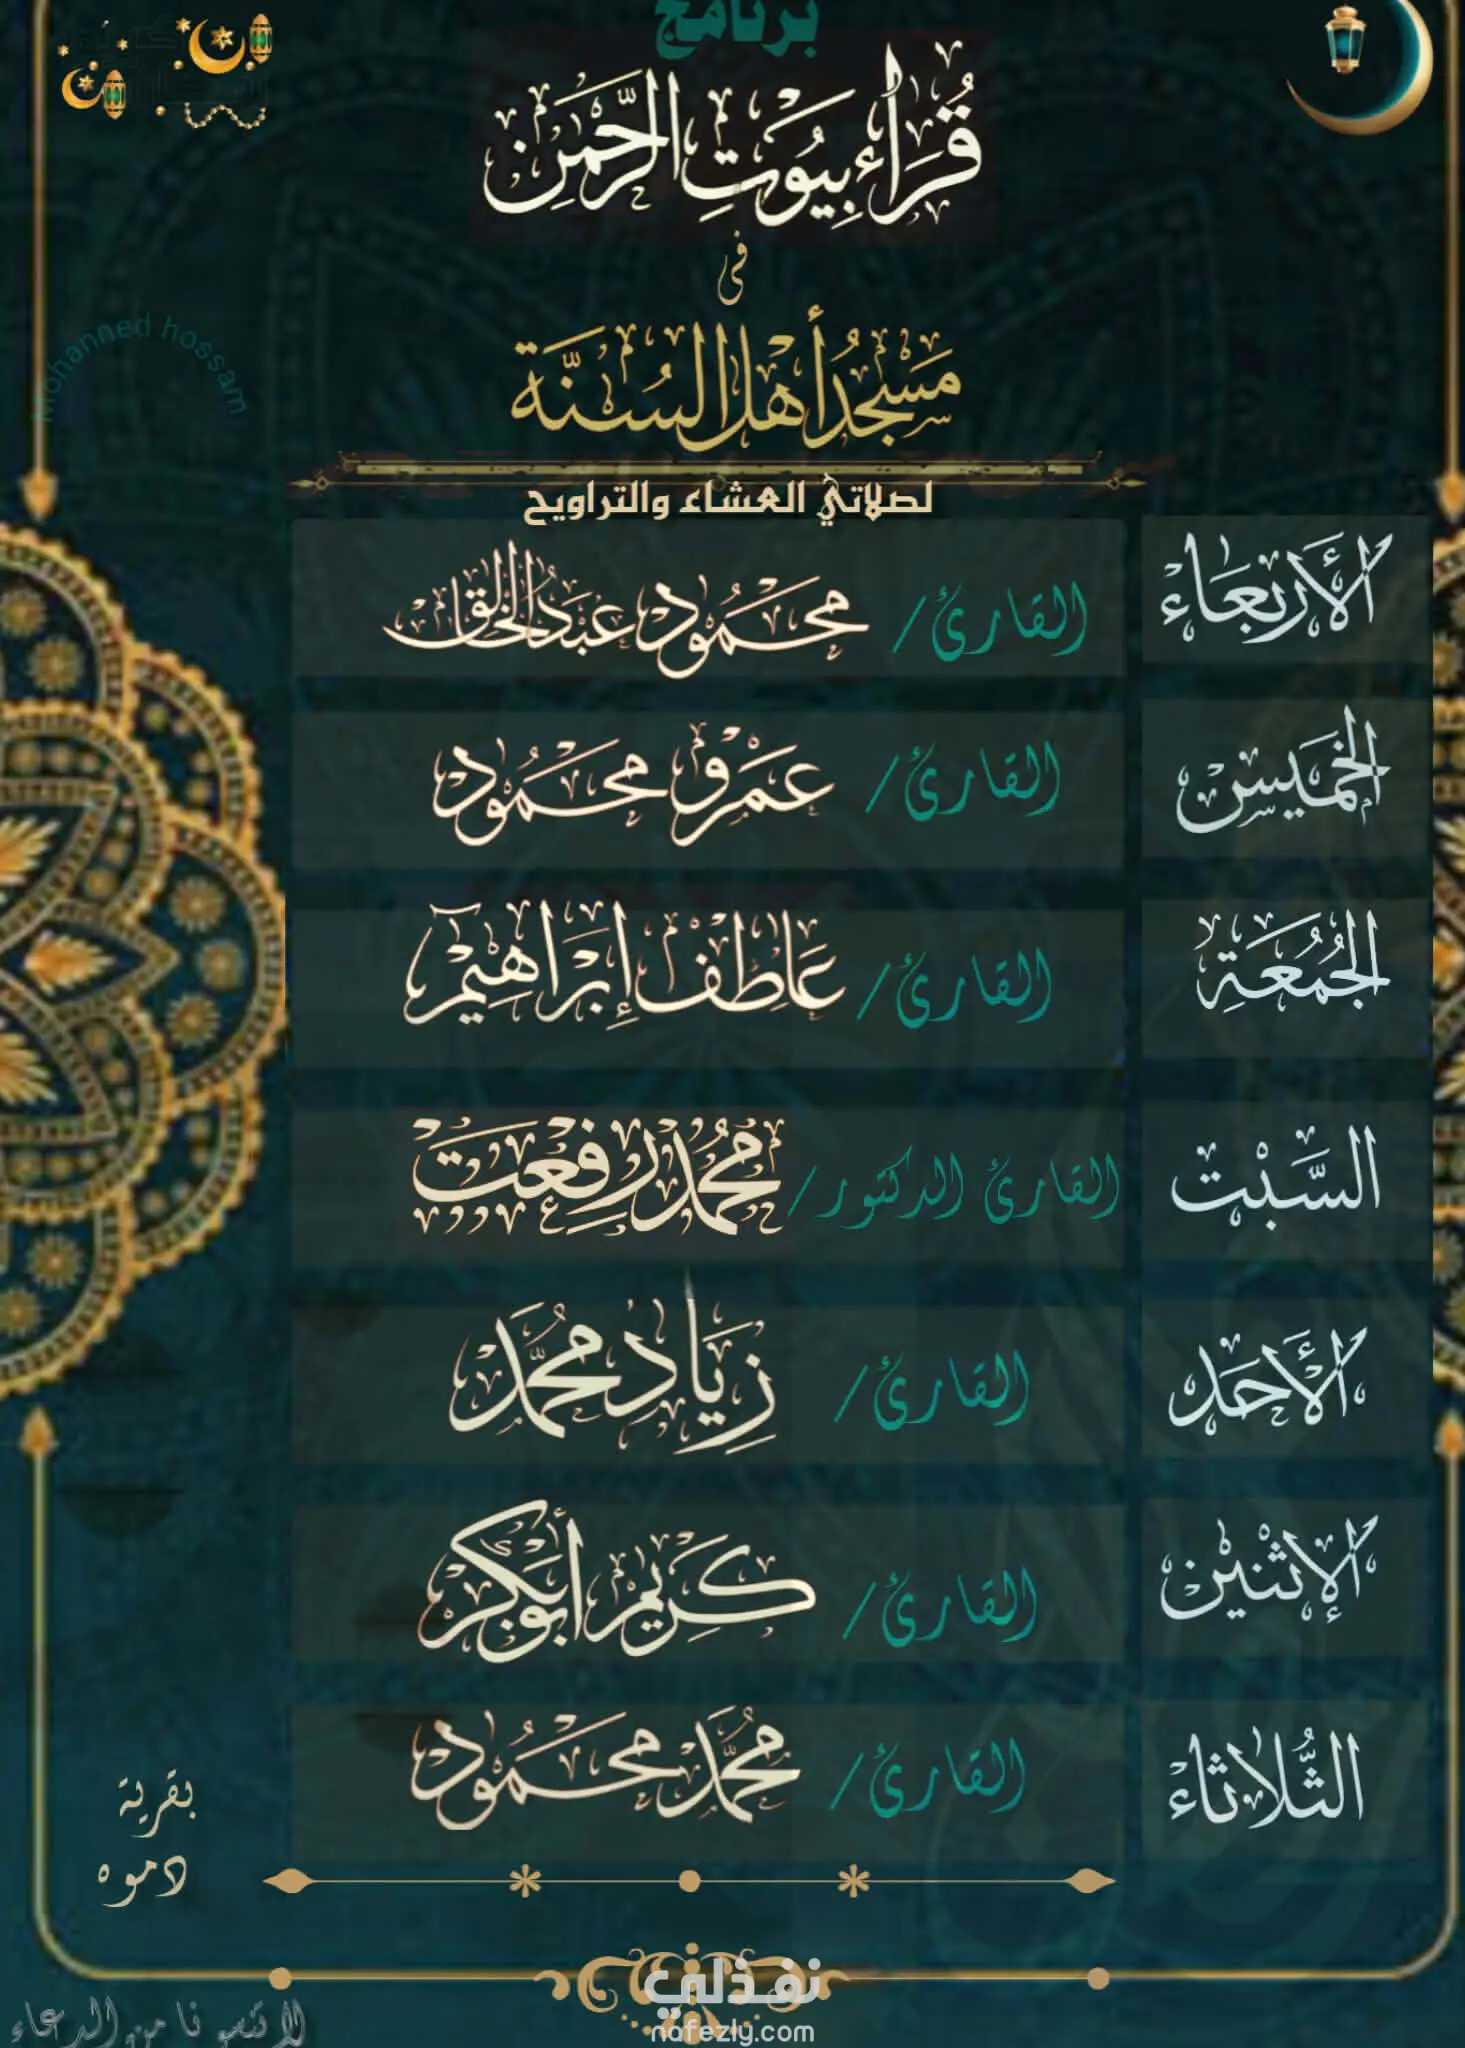 برنامج
قُرَاء بيُوَتِ الرَّحْمَن
في
مَسْجدُ أهل السُنَّة
Mohanned hossam
لصلاتي العشاء والتراويح
الأَربَعَاء
القارئ / محَمُود عَبدُ الخَالق
الخَميَس
القارئ / عَمْرو محَمُود
الجُمُعَةِ
القارئ / عَاطف إبرَاهيم
السَّبْت
القارئ الدكتور / محُمَّد رِفْعَت
الأَحَد
القارئ / زِيَاد محُمَّد
الإثنَين
القارئ / كَرِيم أبوَبَكر
الثُّلاثاء
القارئ / محُمَّد محَمُود
بقرية
دموه
لا تنسونا من الدعاء
نفذلي
nafezly.com